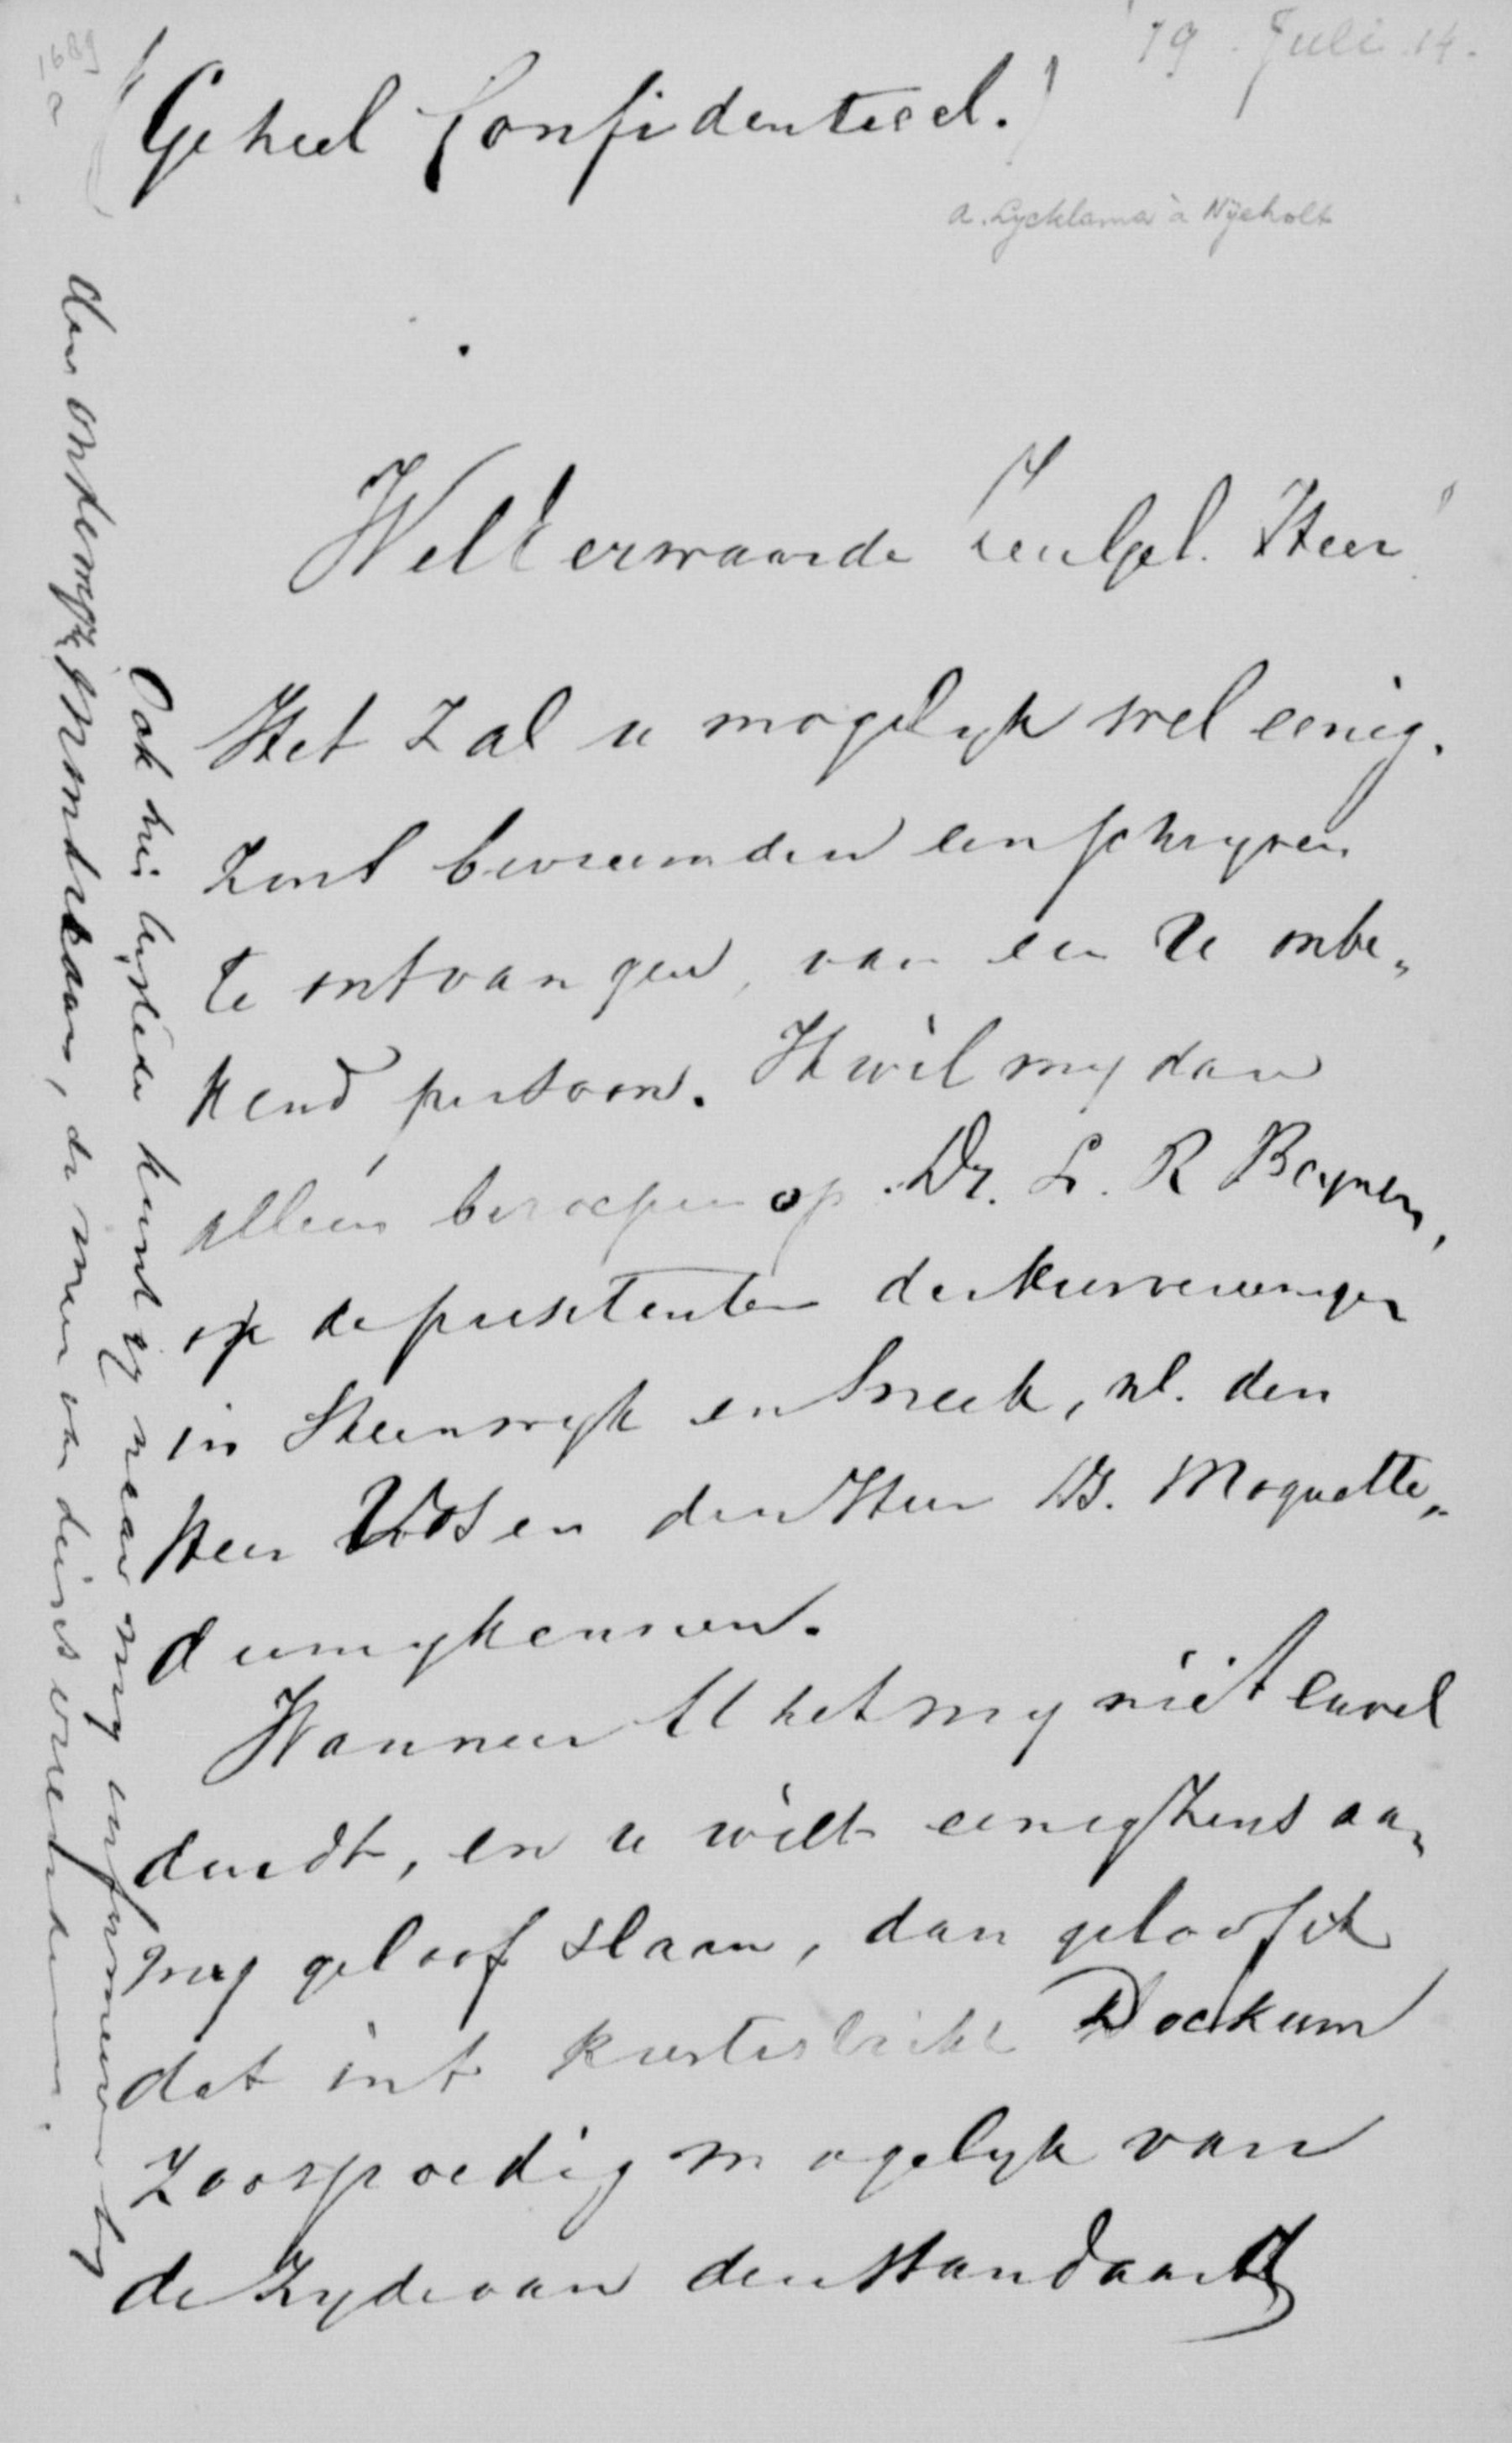 19 Juli 14.
1689
a
(Geheel Confidentieel.)
A. Lycklama à Nijeholt
WelEerwaarde Zeergel. Heer!
Het zal u mogelyk wel eenig-
zins bevreemden een schryven
te ontvangen, van een U onbe„
kend persoon. Ik wil my dan
alleen beroepen op Dr. L. R Beynen,
op de presidenten der kiesvereenigen
in Steenwyk en Sneek, nl. den
Heer Vos en den Heer Ds. Moquette„
die my kennen.
Wanneer U het my niet euvel
duidt, en u wilt eenigzins aan
my geloof slaan, dan geloof ik
dat int kiesdistrict Dockum
zoo spoedig mogelyk van
de zyde van den Standaard
Ook hier ter stede kunt gy naar my informeeren by
den Antirevolutionair, die my van dienst